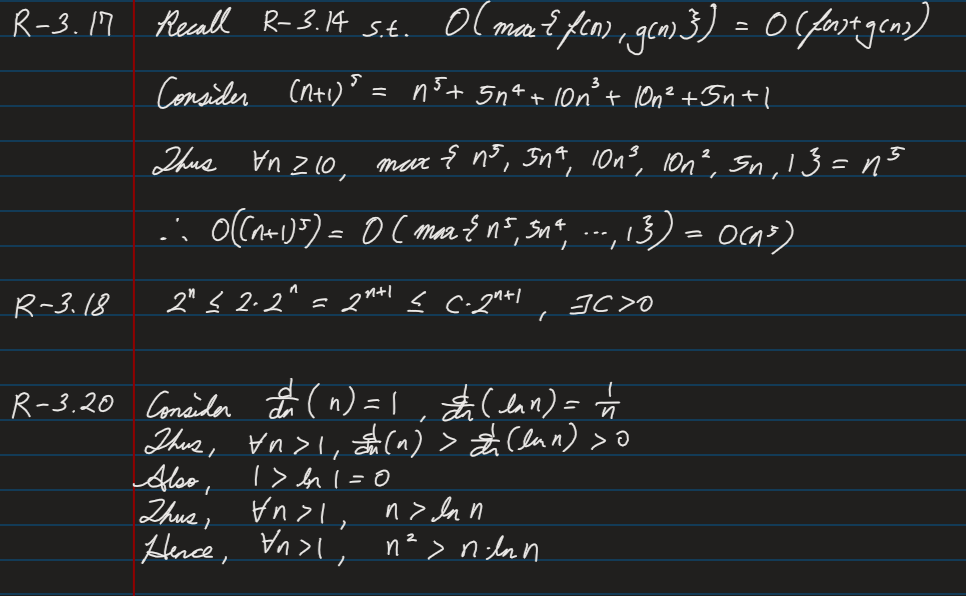 R-3.17 Recall R-3.14 s.t. O(max{f(n), g(n)}) = O(f(n)+g(n))
Consider (n+1)⁵ = n⁵ + 5n⁴ + 10n³ + 10n² + 5n + 1
Thus ∀n ≥ 10, max{n⁵, 5n⁴, 10n³, 10n², 5n, 1} = n⁵
∴ O((n+1)⁵) = O(max{n⁵, 5n⁴, ⋯, 1}) = O(n⁵)
R-3.18 2ⁿ ≤ 2·2ⁿ = 2ⁿ⁺¹ ≤ C·2ⁿ⁺¹, ∃C>0
R-3.20 Consider d/dn(n) = 1, d/dn(ln n) = 1/n
Thus, ∀n>1, d/dn(n) > d/dn(ln n) > 0
Also, 1 > ln 1 = 0
Thus, ∀n>1, n > ln n
Hence, ∀n>1, n² > n·ln n